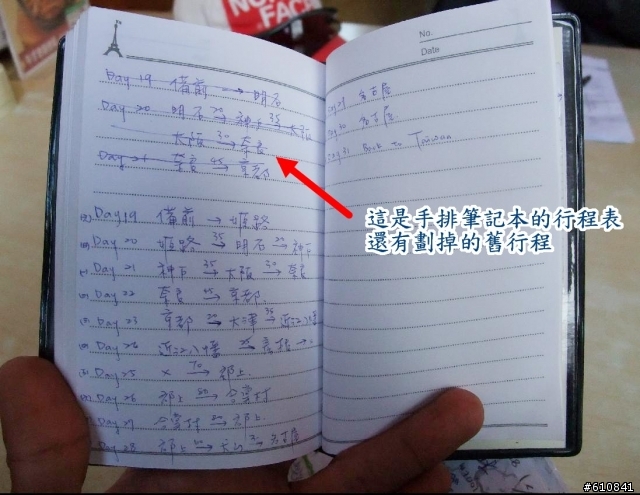 NO
FAC
No.
Date
Day 19 備前 → 明石
Day 20 明石 20→ 神戶 35→ 大阪
大阪 30→ 奈良
Day 21 奈良 45→ 京都
Day 19 備前 → 姬路
Day 20 姬路 35→ 明石 20→ 神戶
Day 21 神戶 35→ 大阪 30→ 奈良
Day 22 奈良 45→ 京都
Day 23 京都 → 大津 → 近江八幡
Day 24 近江八幡 →
Day 25 × 70→ 郡上
Day 26 郡上 → 合掌村
Day 27 合掌村 → 郡上
Day 28 郡上 → 犬山 → 名古屋
Day 29 名古屋
Day 30 名古屋
Day 31 Back To Taiwan
這是手排筆記本的行程表
還有劃掉的舊行程
#610841